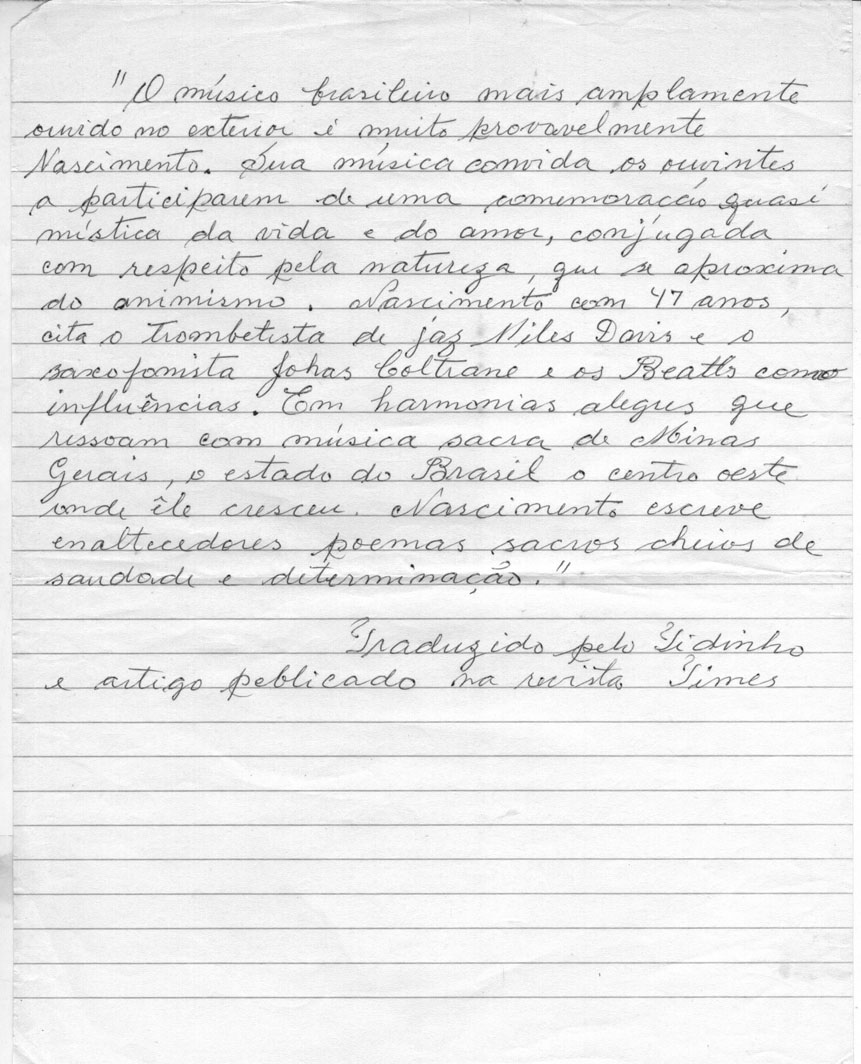 "O músico brasileiro mais amplamente
ouvido no exterior é muito provavelmente
Nascimento. Sua música convida os ouvintes
a participarem de uma comemoração quasi
mística da vida e do amor, conjugada
com respeito pela natureza, que se aproxima
do animismo. Nascimento com 47 anos,
cita o trombetista de jaz Miles Davis e o
saxofonista Johas Coltrane e os Beatls como
influências. Em harmonias alegres que
ressoam com música sacra de Minas
Gerais, o estado do Brasil o centro oeste
onde êle cresceu. Nascimento escreve
enaltecedores poemas sacros cheios de
saudade e determinação."
Traduzido pelo Tidinho
e artigo peblicado na revista Times